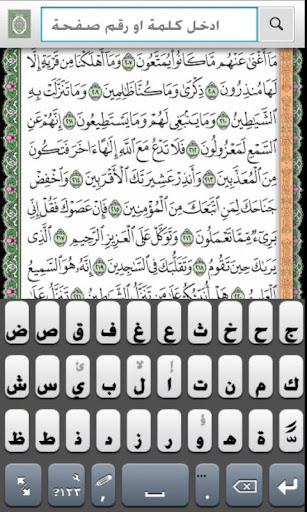 ادخل كلمة او رقم صفحة
مَا أَغْنَىٰ عَنْهُم مَّا كَانُوا يُمَتَّعُونَ ٢٠٧ وَمَا أَهْلَكْنَا مِن قَرْيَةٍ إِلَّا
لَهَا مُنذِرُونَ ٢٠٨ ذِكْرَىٰ وَمَا كُنَّا ظَالِمِينَ ٢٠٩ وَمَا تَنَزَّلَتْ بِهِ
الشَّيَاطِينُ ٢١٠ وَمَا يَنبَغِي لَهُمْ وَمَا يَسْتَطِيعُونَ ٢١١ إِنَّهُمْ عَنِ
السَّمْعِ لَمَعْزُولُونَ ٢١٢ فَلَا تَدْعُ مَعَ اللَّهِ إِلَٰهًا آخَرَ فَتَكُونَ
مِنَ الْمُعَذَّبِينَ ٢١٣ وَأَنذِرْ عَشِيرَتَكَ الْأَقْرَبِينَ ٢١٤ وَاخْفِضْ
جَنَاحَكَ لِمَنِ اتَّبَعَكَ مِنَ الْمُؤْمِنِينَ ٢١٥ فَإِنْ عَصَوْكَ فَقُلْ إِنِّي
بَرِيءٌ مِّمَّا تَعْمَلُونَ ٢١٦ وَتَوَكَّلْ عَلَى الْعَزِيزِ الرَّحِيمِ ٢١٧ الَّذِي
يَرَاكَ حِينَ تَقُومُ ٢١٨ وَتَقَلُّبَكَ فِي السَّاجِدِينَ ٢١٩ إِنَّهُ هُوَ السَّمِيعُ
ج ح خ ث ع غ ف ق ص ض
ك م ن ت ا ل ب ي س ش
ة ه و ر ز د ذ ط ظ
?١٢٣